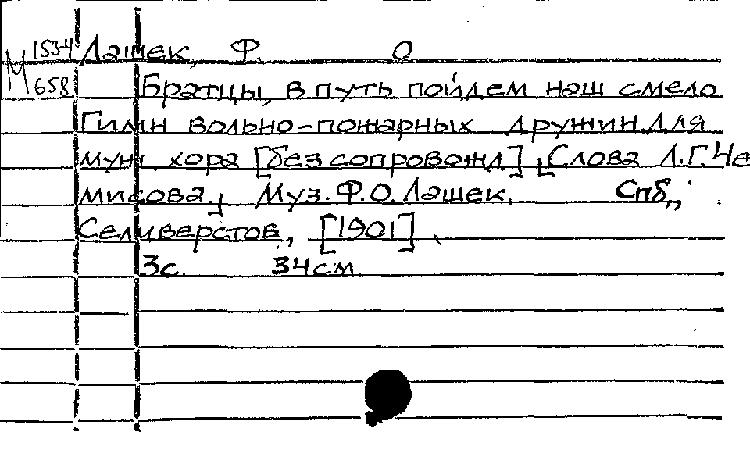 М 1534/658 Лашек, Ф. О
Братцы, в путь пойдем наш смело
Гимн вольно-пожарных дружин. Для
муж хора [без сопровожд]. Слова Л.Г. Че
мисова. Муз. Ф.О. Лашек. Спб.,
Селиверстов, [1901].
3с. 34см